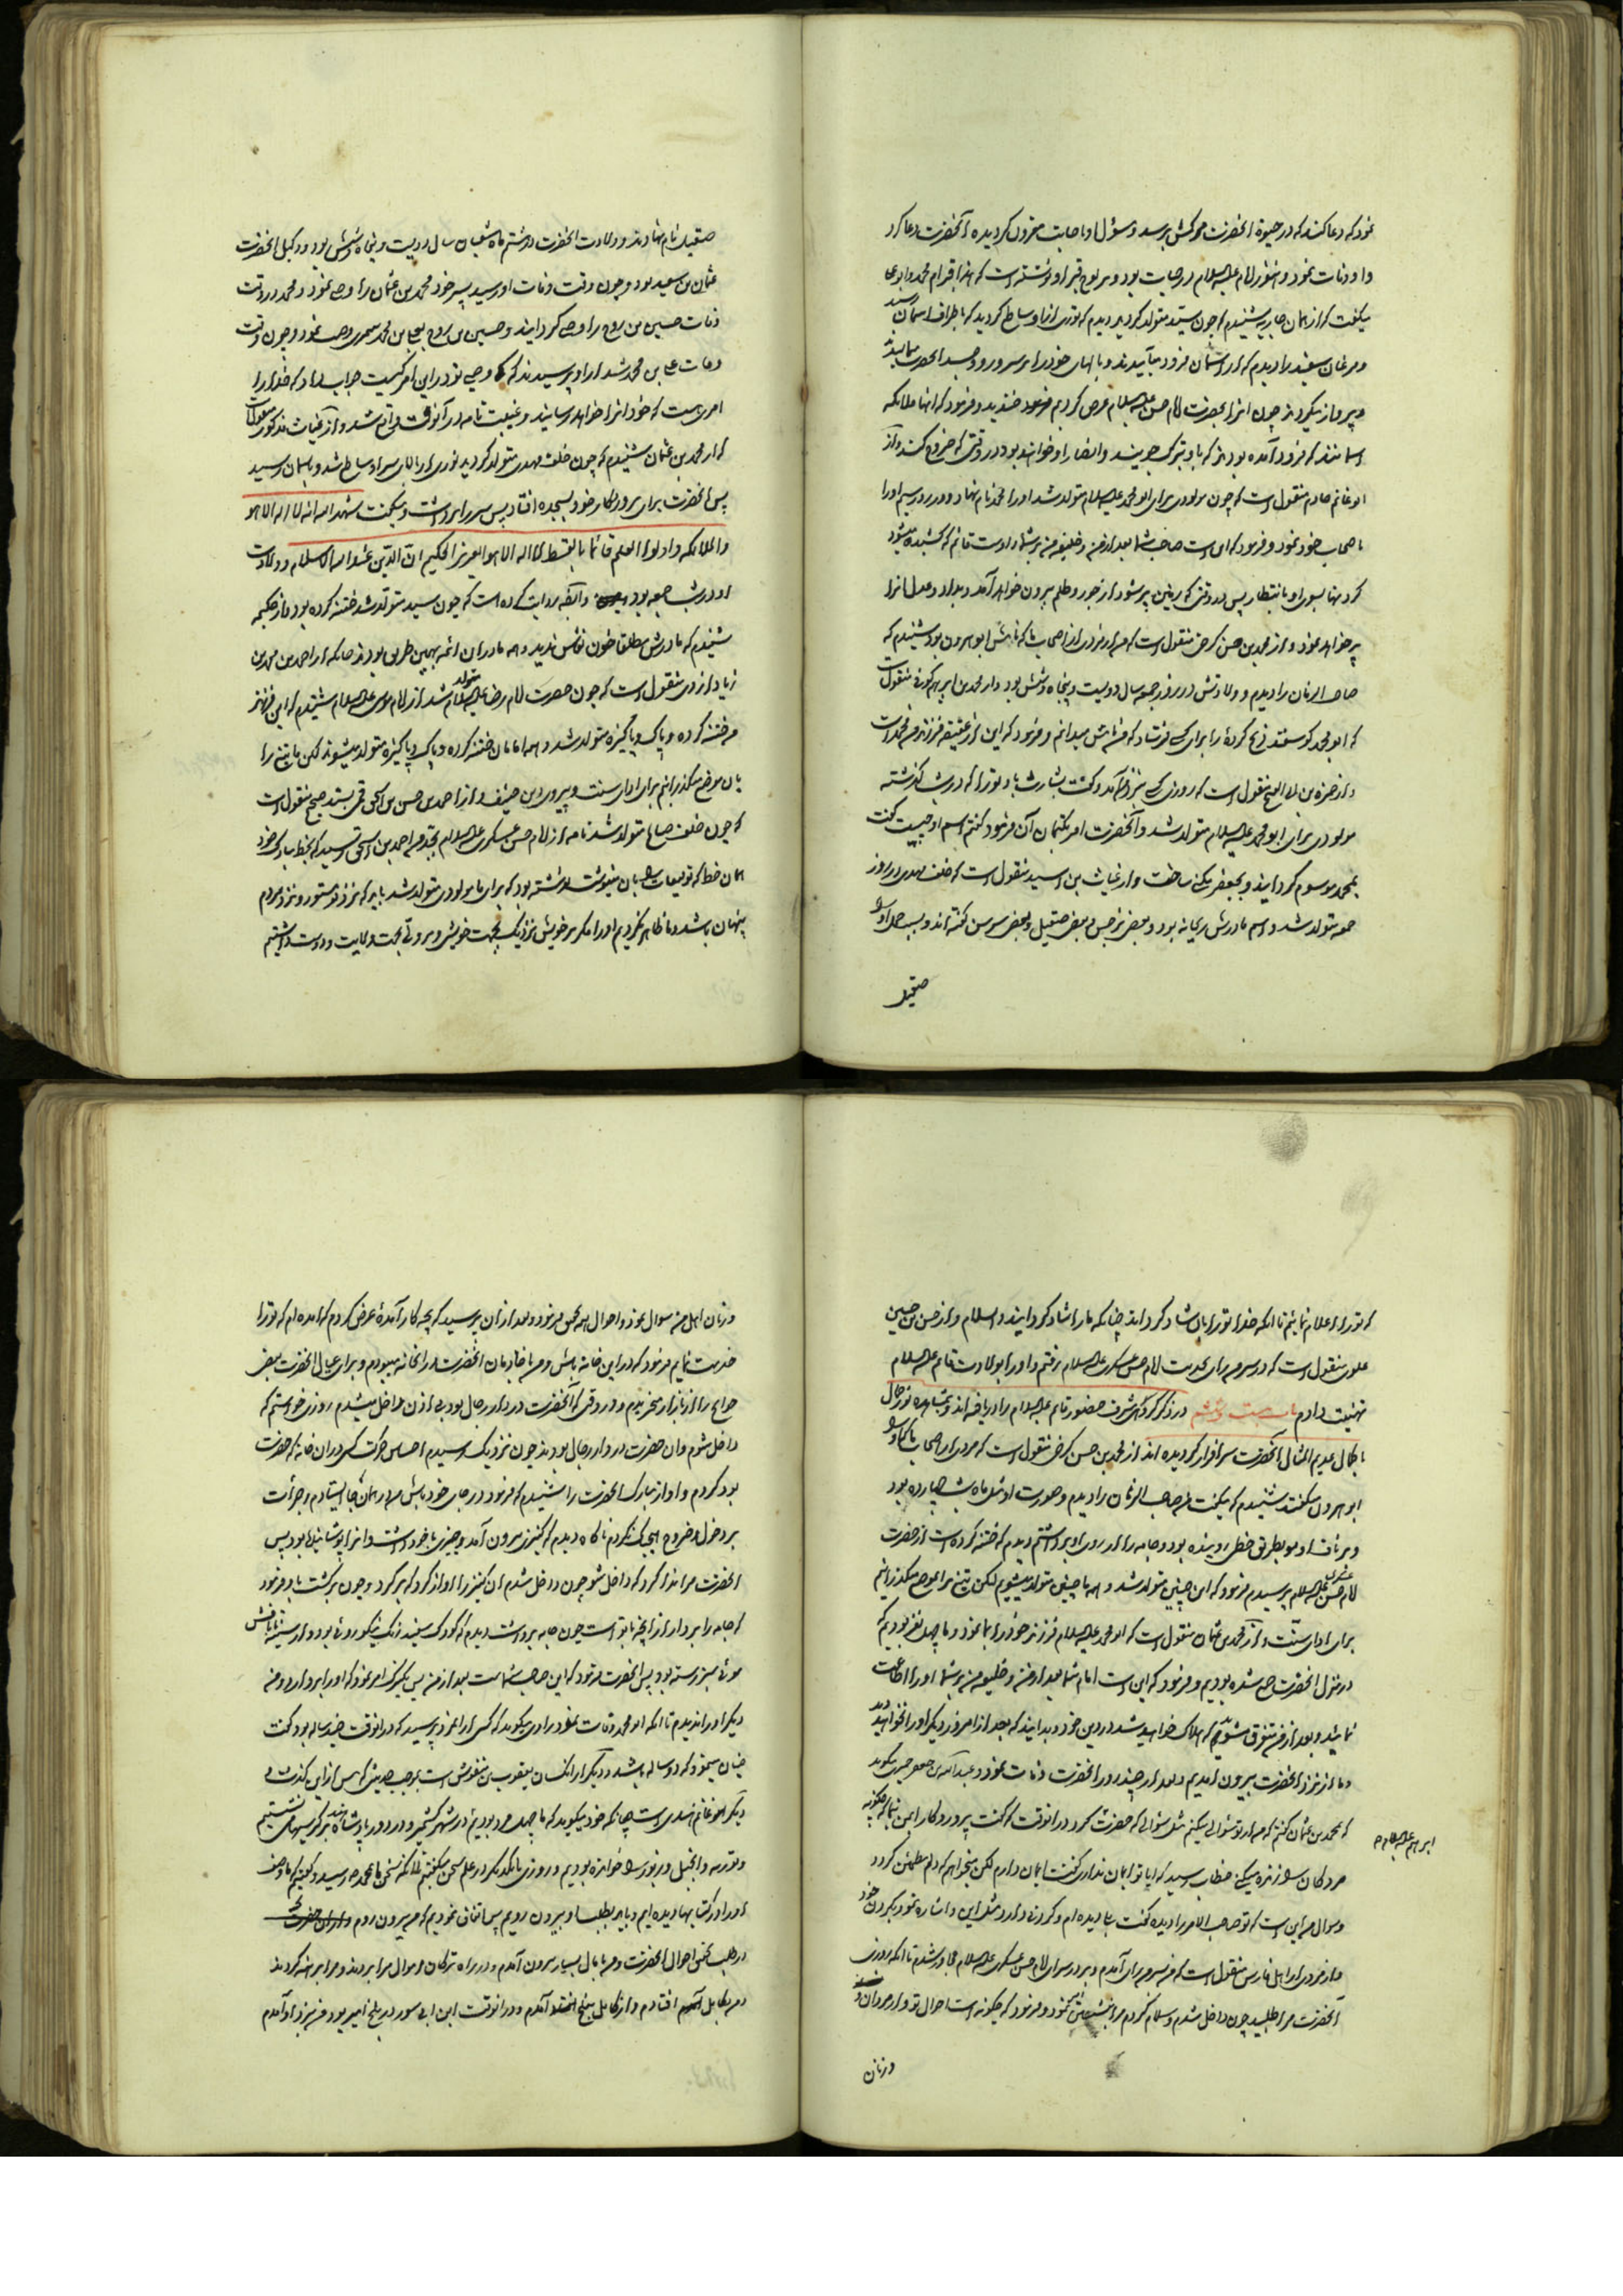 نمود که دعا کنند که در حیوة آنحضرت مرکش برسد و مسؤل او باجابت مقرون گردیده آنحضرت دعا کرد
و او وفات نمود و هنوز امام علیه السلام در حیات بود و بر لوح قبر او نوشته است که هذا قبر ام محمد و ابو علی
میگفت که از همان جاریه شنیدم که چون سید متولد گردید دیدم که نوری از او ساطع گردید که باطراف آسمان رسید
و مرغان سفید را دیدم که از آسمان فرود میآیند و بالهای خود را بر سر و رو و جسد آنحضرت میمالند
و پرواز میکردند چون این را بحضرت امام حسن علیه السلام عرض کردیم خندید و فرمود که اینها ملائکه
آسمانند که فرود آمده بودند که باو تبرک جویند و انصار او خواهند بود در وقتی که خروج کند و از
ابو غانم خادم منقول است که چون مولودی برای ابو محمد علیه السلام متولد شد او را محمد نام نهاد و در روز سیم او را
باصحاب خود نمود و فرمود که این است صاحب شما بعد از من و خلیفه من بر شما و اوست قائم که کشیده میشود
گردنها بسوی او بانتظار پس در وقتی که زمین پر شود از جور و ظلم بیرون خواهد آمد و بداد و عدل آنرا
پر خواهد نمود و از محمد بن حسن کرخی منقول است که من از مردی از اصحاب ما که نامش ابو هرون بود شنیدم که
صاحب الزمان را دیدم و ولادتش در روز جمعه سال دویست و پنجاه و شش بود و از محمد بن ابرهیم کوفی منقول است
که ابو محمد گوسفند ذبح کرده را برای کسی فرستاد که من نامش میدانم و فرمود که این از عقیقه فرزند من محمد است
و از حمزة بن ابی الفتح منقول است که روزی کسی بنزد من آمد و گفت بشارت باد تو را که در شب گذشته
مولودی برای ابو محمد علیه السلام متولد شد و آنحضرت امر بکتمان آن فرمود گفتم اسم او چیست گفت
بمحمد موسوم گردانید و بجعفر مکنی ساخت و از غیاث بن اسید منقول است که خلف مهدی در روز
جمعه متولد شد و اسم مادرش ریحانه بود و بعضی نرجس و بعضی صقیل و بعضی سوسن گفته اند و بسبب حمل او را
صقیل
صقیل نام نهادند و ولادت آنحضرت در هشتم ماه شعبان سال دویست و پنجاه و شش بود و وکیل آنحضرت
عثمان بن سعید بود و چون وقت وفات او رسید پسر خود محمد بن عثمان را وصی نمود و محمد در وقت
وفات حسین بن روح را وصی گردانید و حسین بن روح بعلی بن محمد سمری وصیت نمود و چون وقت
وفات علی بن محمد شد از او پرسیدند که وصی تو در این امر کیست جواب داد که خدا را
امری هست که خود آنرا خواهد رسانید و غیبت تامه در آن وقت واقع شد و از غیاث مذکور منقول است
که از محمد بن عثمان شنیدم که چون خلف مهدی متولد گردید نوری از بالای سر او ساطع شد و بآسمان رسید
پس آنحضرت برای پروردگار خود بسجده افتاد پس سر را برداشت و میگفت شهد الله انه لا اله الا هو
والملائکه و اولوا العلم قائما بالقسط لا اله الا هو العزیز الحکیم ان الدین عند الله الاسلام و ولادت
او در شب جمعه بود و ایضا روایت کرده است که چون سید متولد شد ختنه کرده بود و از حکیمه
شنیدم که مادرش مطلقا خون نفاس ندید و همه مادران ائمه بهمین طریق بودند چنانکه از احمد بن محمد بن
زیاد ازدی منقول است که چون حضرت امام رضا علیه السلام متولد شد از امام موسی علیه السلام شنیدم که این فرزند
من ختنه کرده و پاک و پاکیزه متولد شد و همه امامان ختنه کرده و پاک و پاکیزه متولد میشوند لکن ما تیغ را
بان موضع میگذرانیم برای ادای سنت و پیروی دین حنیف و از احمد بن حسن بن اسحق قمی بسند صحیح منقول است
که چون خلف صالح متولد شد نامه از امام حسن عسکری علیه السلام بجد من احمد بن اسحق رسید که بخط مبارک خود
همان خط که توقیعات بان مینوشت نوشته بود که برای ما مولودی متولد شد باید که نزد تو مستور و نزد مردم
پنهان باشد و ما ظاهر نکردیم او را مگر بر خویش نزدیک بجهت خویشی و بر دوستی بجهت ولایت و دوست داشتیم
که تو را اعلام نمائیم تا آنکه خدا تو را بان شاد گرداند چنانکه ما را شاد گردانید و السلام و از حسن بن حسین
علوی منقول است که در سر من رای بخدمت امام حسن عسکری علیه السلام رفتم و او را بولادت قائم علیه السلام
تهنیت دادم باب بیست و هشتم در ذکر گروهی که شرف حضور قائم علیه السلام را دریافته اند و بمشاهده نور جمال
با کمال عدیم المثال آنحضرت سرافراز گردیده اند از محمد بن حسن کرخی منقول است که مردی از اصحاب ما که او را
ابو هرون میگفتند شنیدم که میگفت من صاحب الزمان را دیدم و صورت او مثل ماه شب چهارده بود
و بر ناف او مو بطریق خطی روئیده بود و جامه را از روی او برداشتم دیدم که ختنه کرده است از حضرت
امام حسن عسکری علیه السلام پرسیدم فرمود که این چنین متولد شد و همه ما چنین متولد میشویم لکن تیغ بر آن موضع میگذرانیم
برای ادای سنت و از محمد بن عثمان منقول است که ابو محمد علیه السلام فرزند خود را بما نمود و ما چهل نفر بودیم که
در منزل آنحضرت جمع شده بودیم و فرمود که این است امام شما بعد از من و خلیفه من بر شما او را اطاعت
نمائید و بعد از من متفرق مشوید که هلاک خواهید شد در دین خود و بدانید که بعد از امروز دیگر او را نخواهید دید
و ما از نزد آنحضرت بیرون آمدیم و بعد از چند روز آنحضرت وفات نمود و عبد الله بن جعفر حمیری میگوید
که بمحمد بن عثمان گفتم که من از تو سؤالی میکنم مثل سؤالی که حضرت ابراهیم علیه السلام کرد در آنوقت که گفت پروردگارا بمن بنما که چگونه
مردگان را زنده میکنی خطاب رسید که ایا تو ایمان نداری گفت ایمان دارم لکن میخواهم که دلم مطمئن گردد
و سوال من این است که تو صاحب الامر را دیده گفت بلی دیده ام و گردنی دارد مثل این و اشاره نمود بگردن خود
و از مردی از اهل فارس منقول است که من بسر من رای آمدم و بر در سرای امام حسن عسکری علیه السلام مجاور شدم تا آنکه روزی
آنحضرت مرا طلبید چون داخل شدم و سلام کردم فرمود که چگونه است احوال تو و از مردان و
وزنان
وزنان اهل من سوال نمود و احوال همه بمن فرمود و بعد از آن پرسید که بچه کار آمدهٔ عرض کردم که آمده ام که تو را
خدمت نمایم فرمود که در این خانه باش و من با خادمان آنحضرت در آنخانه میبودم و برای عیال آنحضرت بعضی
حوایج را از بازار میخریدم و در وقتی که آنحضرت در دار رجال بود بی اذن داخل میشدم روزی خواستم که
داخل شوم و آن حضرت در دار رجال بودند چون نزدیک رسیدم احساس حرکت کسی در آن خانه که حضرت
بود کردم و آواز مبارک آنحضرت را شنیدم که فرمود در جای خود باش من در همان جا ایستادم و جرأت
بر دخول و خروج هیچیک نکردم ناگاه دیدم که کنیزی بیرون آمد و چیزی با خود داشت و آنرا پوشانیده بود پس
آنحضرت مرا ندا کرد که داخل شو چون داخل شدم آن کنیز را آواز کرد که برگرد و چون برگشت باو فرمود
که جامه را بردار از آنچه با تو است چون جامه برداشت دیدم که کودک سفید رنگ نیکو روئی بود و از سینه تا نافش
موئی سبز رسته بود پس آنحضرت فرمود که این صاحب شماست بعد از من پس بکنیزک امر نمود که او را برداشت و من
دیگر او را ندیدم تا آنکه ابو محمد وفات نمود راوی میگوید که کسی از آنمرد پرسید که در آنوقت چند ساله بود گفت
چنان مینمود که دو ساله باشد و دیگر از آنکسان یعقوب بن منقوش است بموجب حدیثی که پس از این گذشت و
دیگر ابو غانم هندی است چنانکه خود میگوید که ما چهل مرد بودیم در شهر کشمیر و در دور پادشاه هند بر کرسیها می نشستیم
و توریه و انجیل و زبور را خوانده بودیم و روزی با یکدیگر در علم سخن میگفتیم تا آنکه سخن ما بمحمد ص رسید و گفتیم که ما وصف
او را در کتابها دیده ایم و باید بطلب او بیرون رویم پس اتفاق نمودیم که من بیرون روم و
در طلب تفحص احوال آنحضرت و من با مال بسیار بیرون آمدم و در راه ترکان اموال مرا بردند و مرا برهنه کردند
و من بکابل افتادم و از کابل ببلخ آمدم و در آنوقت ابن ابی سور در بلخ امیر بود من بنزد او آمدم